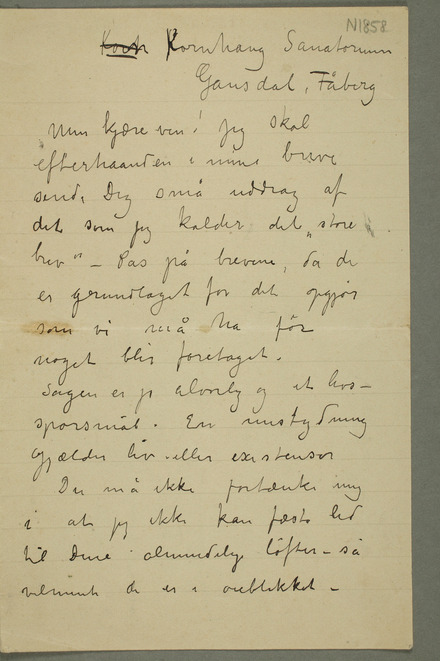 N1858
Kornhaug Sanatorium
Gausdal, Fåberg
Min kjære ven! Jeg skal
efterhaanden i mine breve
sende Dig små uddrag af
det som jeg kalder det „store
brev" – Pas på brevene, da de
er grundlaget for det opgjør
som vi må ha før
noget blir foretaget.
Sagen er jo alvorlig og et livs–
spørsmål. En mistydning
gjælder liv eller existenser
Du må ikke fortænke mig
i at jeg ikke kan fæste lid
til Dine almindelige løfter – så
velmente de er i øieblikket –